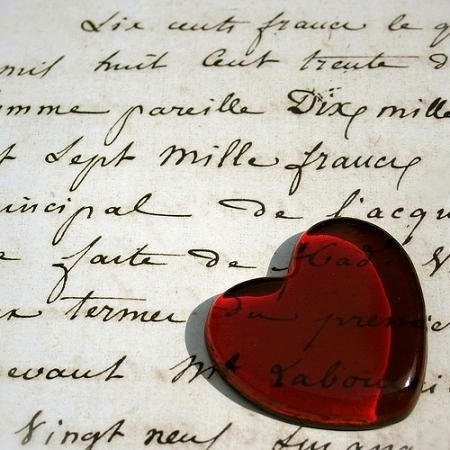 Six cents francs le
mil huit Cent trente
pareille Dix mille
Sept mille francs
principal de l'acqu
faite de Mad
termes du prem
devant Me Labou
Vingt neuf